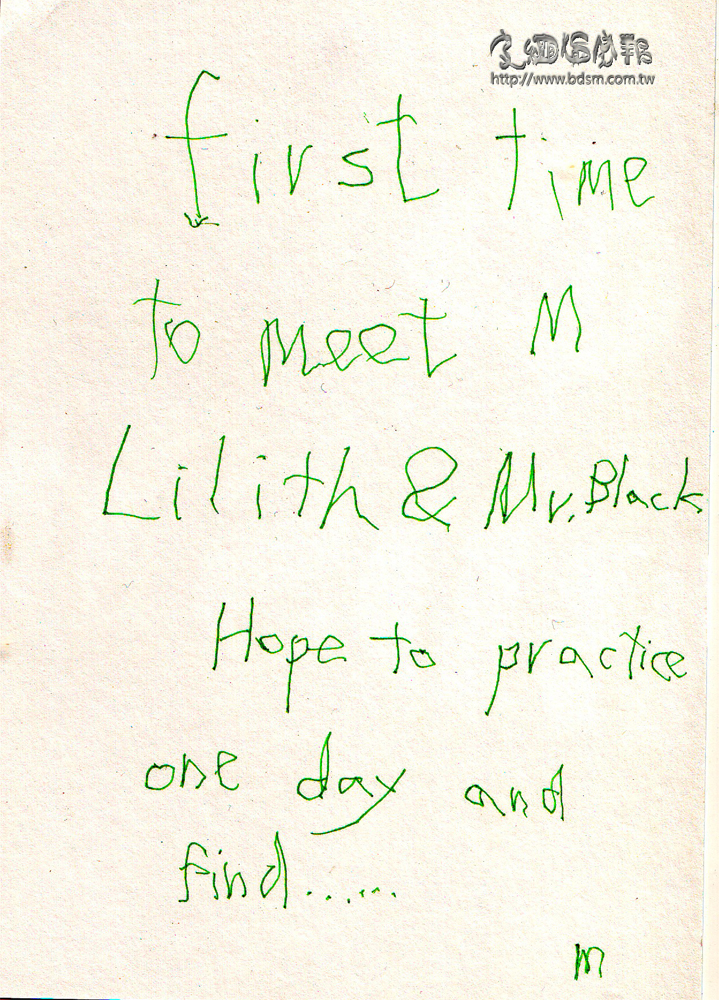 http://www.bdsm.com.tw
first time
to meet M
Lilith & Mr. Black
Hope to practice
one day and
find......
m